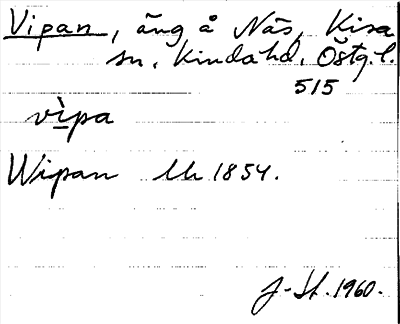 Vipan, äng å Näs, Kisa
sn, Kinda hd, Östg. l.
515
vìpa
Wipan Lk 1854.
J-St. 1960.